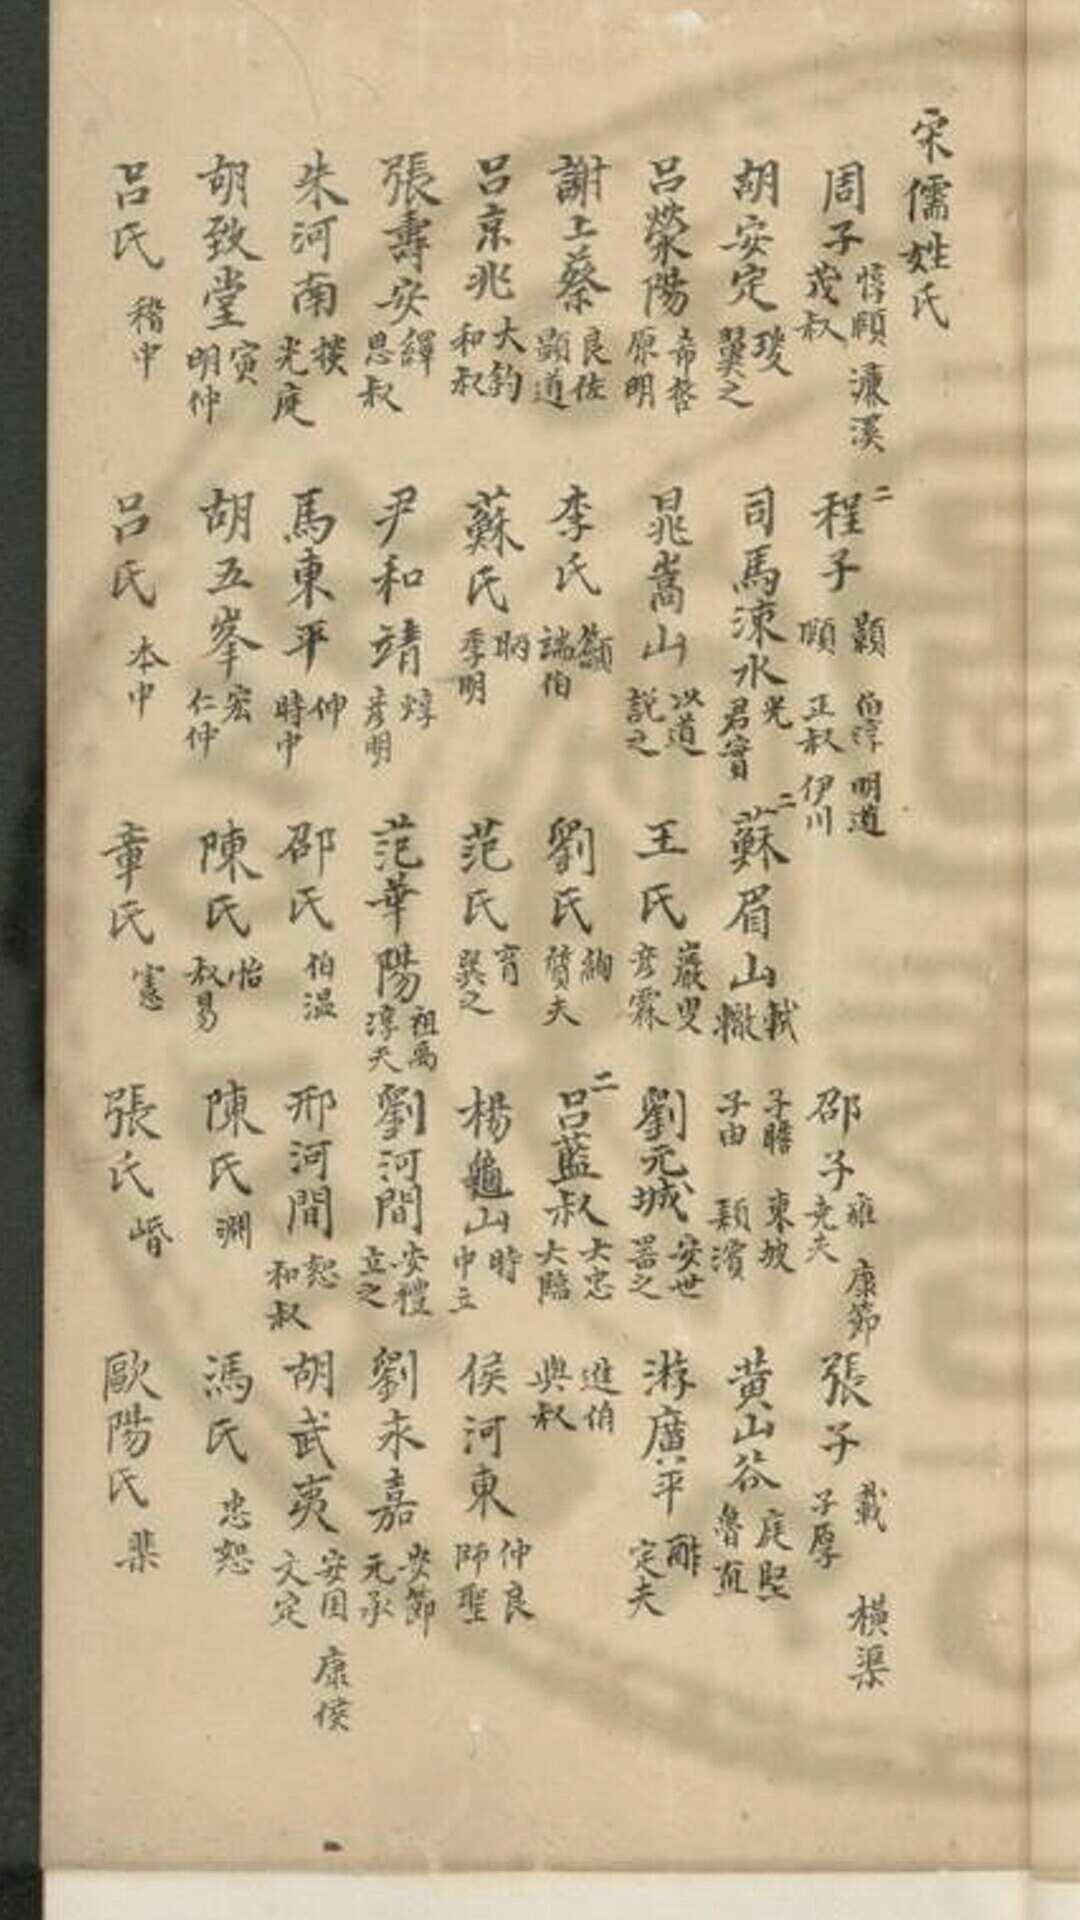 宋儒姓氏
周子 惇頤 茂叔 濂溪 二程子 顥 伯淳 明道 頤 正叔 伊川 邵子 雍 堯夫 康節 張子 載 子厚 橫渠
胡安定 瑗 翼之 司馬涑水 光 君實 二蘇眉山 軾 轍 子瞻 子由 東坡 潁濱 黃山谷 庭堅 魯直
呂滎陽 希哲 原明 晁嵩山 以道 說之 王氏 巖叟 彥霖 劉元城 安世 器之 游廣平 酢 定夫
謝上蔡 良佐 顯道 李氏 籲 端伯 劉氏 絢 質夫 二呂藍叔 大忠 大臨 進伯 與叔
呂京兆 大鈞 和叔 蘇氏 昞 季明 范氏 育 巽之 楊龜山 時 中立 侯河東 仲良 師聖
張壽安 繹 思叔 尹和靖 焞 彥明 范華陽 祖禹 淳夫 劉河間 安禮 立之 劉永嘉 安節 元承
朱河南 掞 光庭 馬東平 伸 時中 邵氏 伯溫 邢河間 恕 和叔 胡武夷 安国 文定 康侯
胡致堂 寅 明仲 胡五峯 宏 仁仲 陳氏 怡 叔易 陳氏 淵 馮氏 忠恕
呂氏 稽中 呂氏 本中 章氏 憲 張氏 㟭 歐陽氏 棐